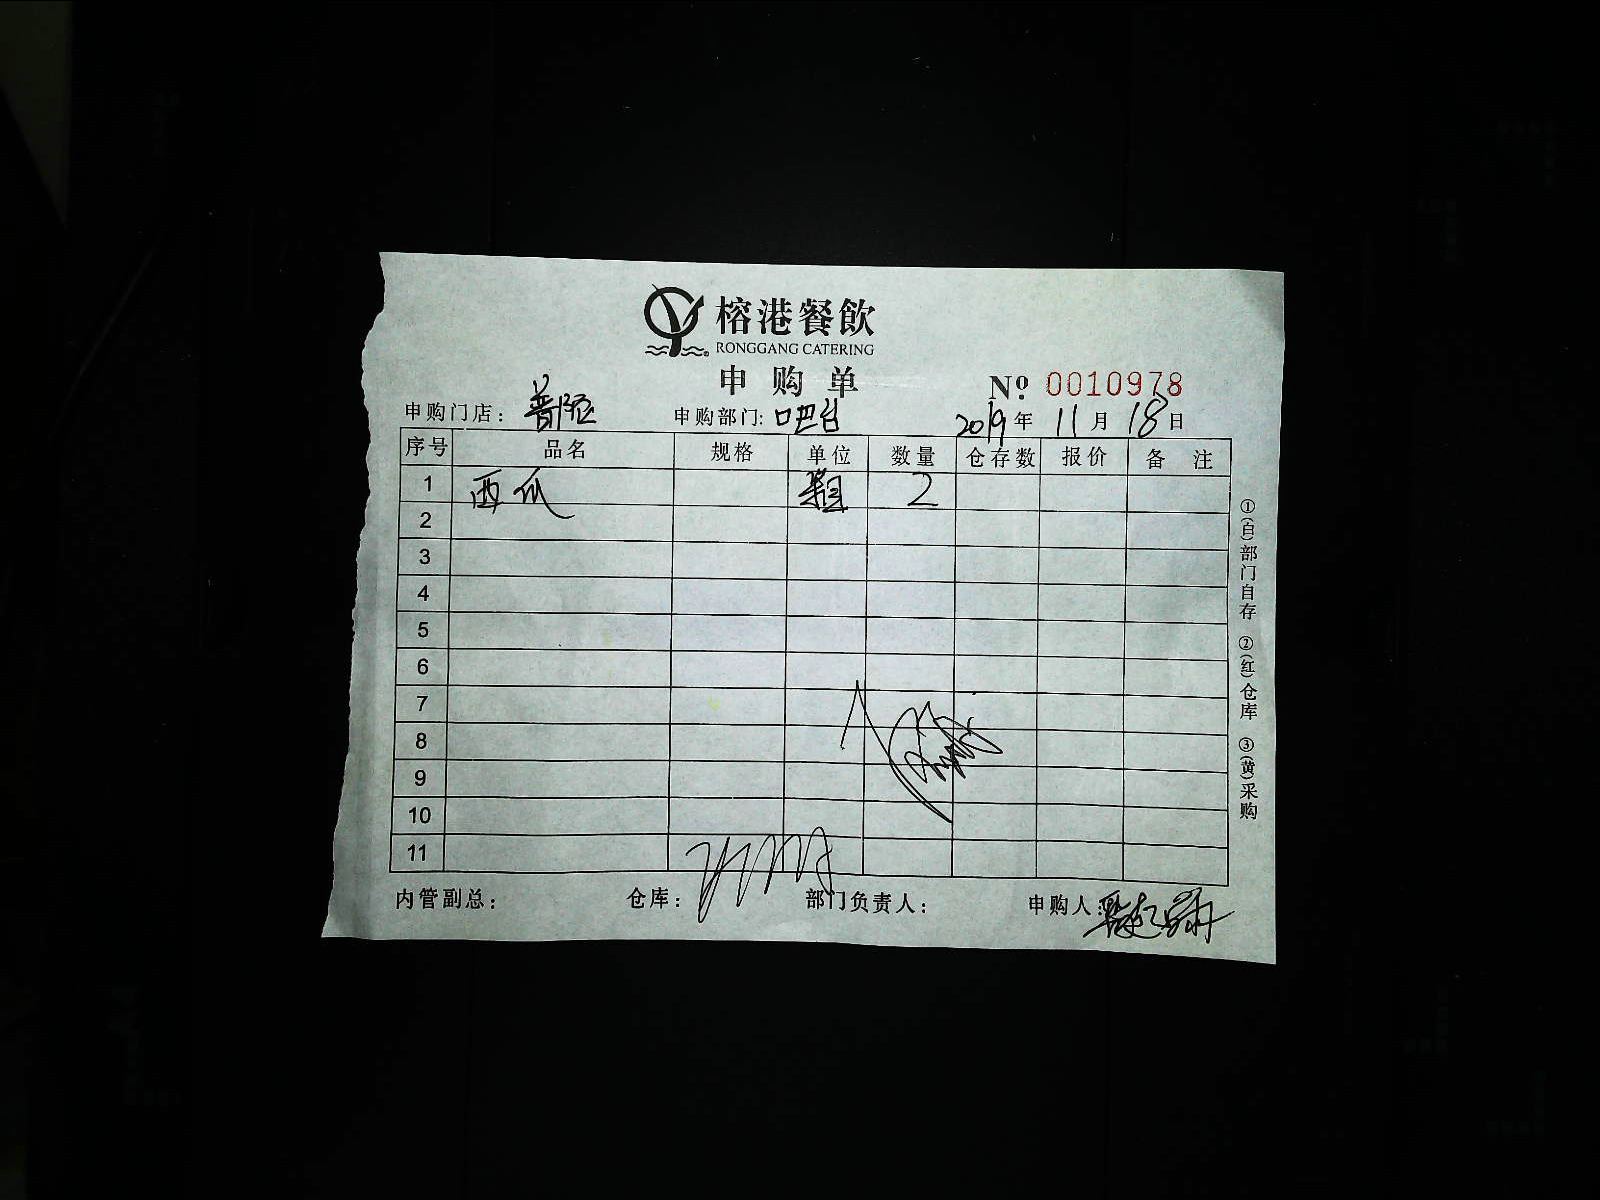 榕港餐飲
RONGGANG CATERING
申购单
№ 0010978
申购门店： 申购部门: 吧台 2019年11月18日
序号 品名 规格 单位 数量 仓存数 报价 备 注
1 西瓜 箱 2
2
3
4
5
6
7
8
9
10
11
内管副总： 仓库： 部门负责人： 申购人：
①(白)部门自存 ②(红)仓库 ③(黄)采购